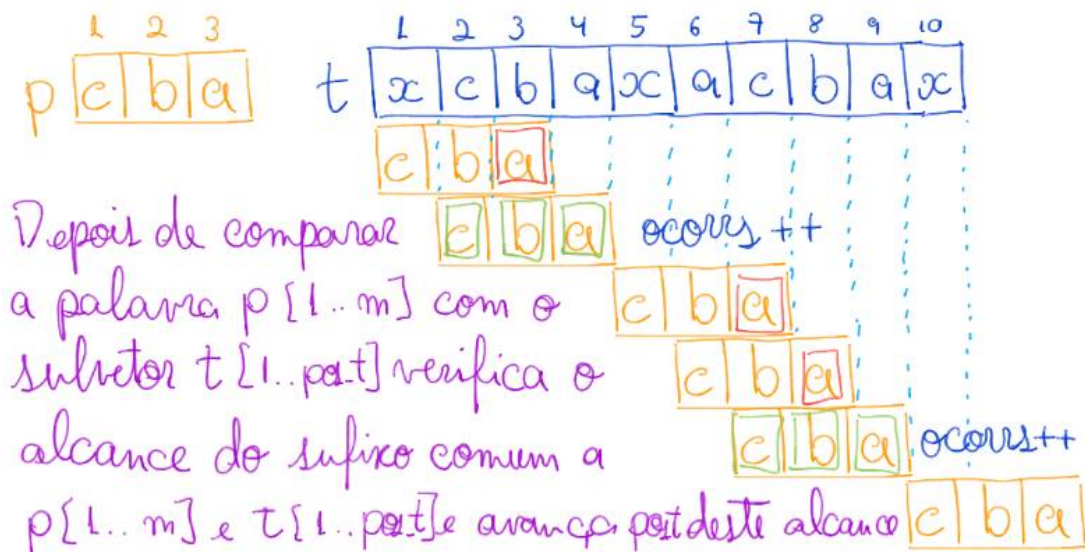 1 2 3 1 2 3 4 5 6 7 8 9 10
p c b a t x c b a x a c b a x
c b a
Depois de comparar c b a ocorrs ++
a palavra p [1.. m] com o c b a
subvetor t [1.. pos_t] verifica o c b a
alcance do sufixo comum a c b a ocorrs++
p[1.. m] e t[1.. pos_t] e avança pos_t deste alcance c b a